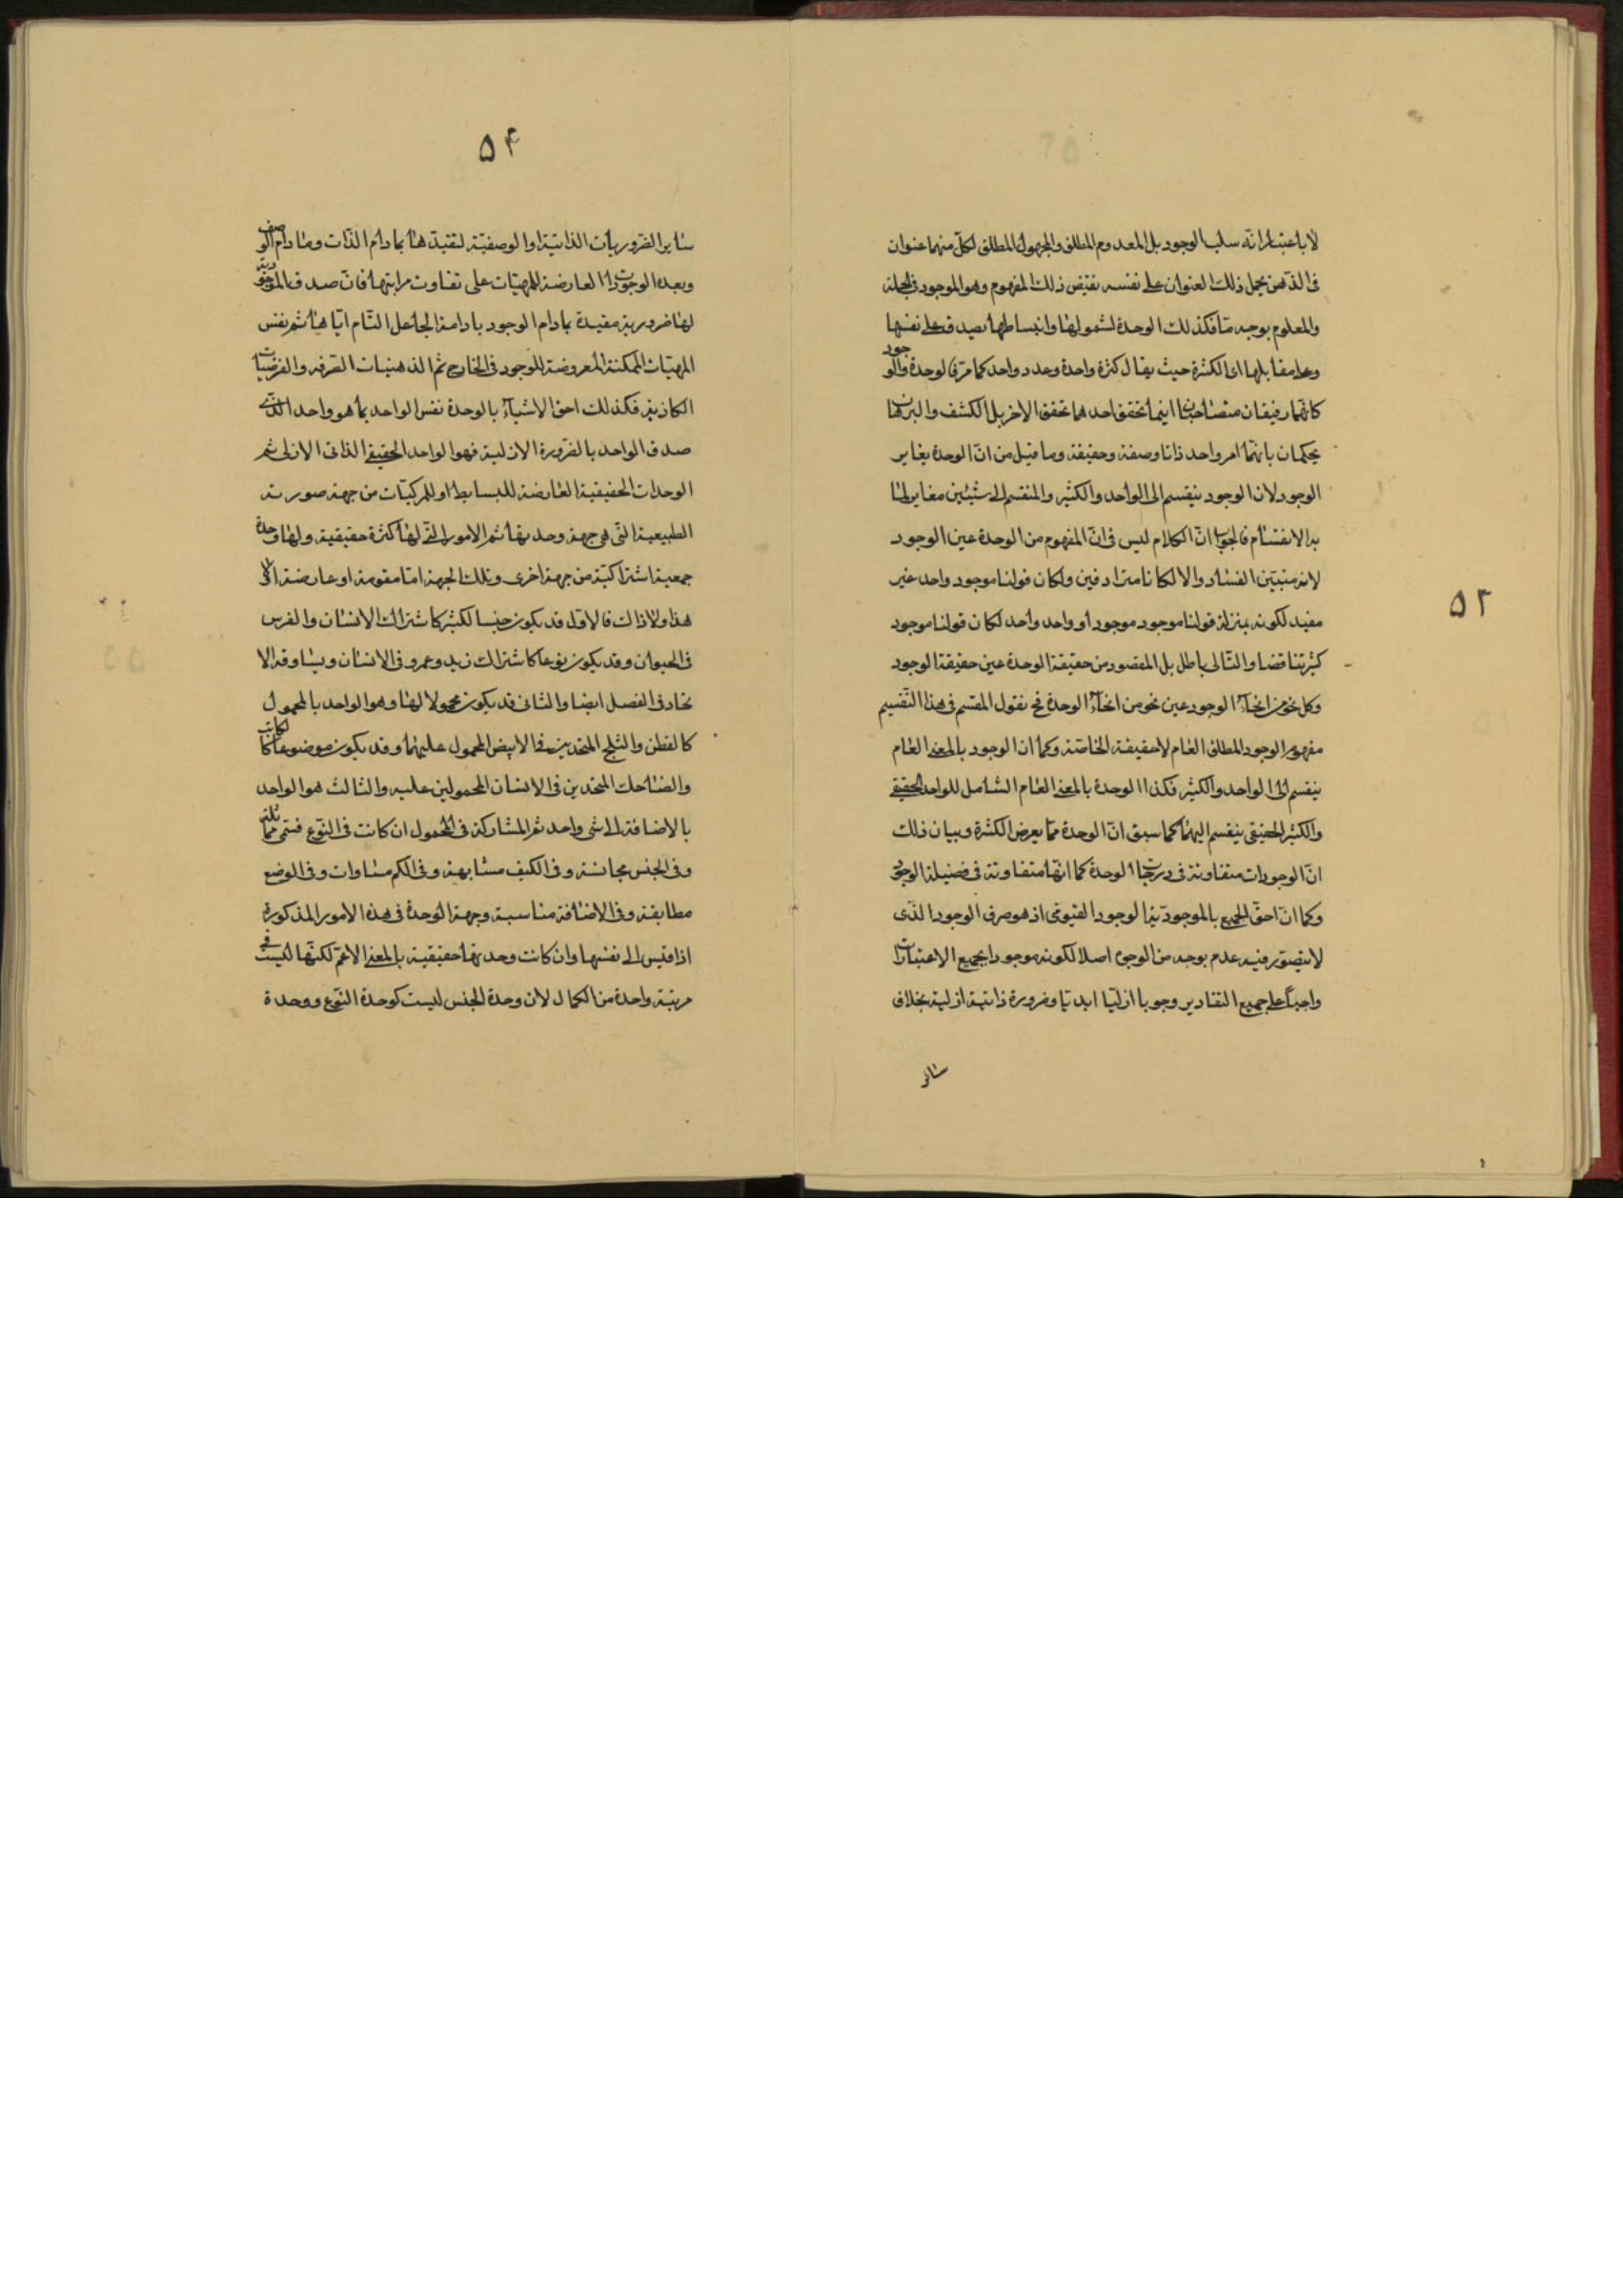 لا باعتبار انّه سلب الوجود بل المعدوم المطلق والمجهول المطلق لكلّ منهما عنوان
فى الذّهن يحمل ذلك العنوان على نفسه نقيض ذلك المفهوم وهو الموجود فى الجملة
والمعلوم بوجه مّا فكذلك الوحدة لشمولها وانبساطها يصدق على نفسها
وعلى مقابلها اى الكثرة حيث يقال كثرة واحدة وعدد واحد كما مرّ فالوحدة والوجود
كانّهما رفيقان متصاحبان اينما تحقق احدهما تحقق الاخر بل الكشف والبرهان
يحكمان بانّهما امر واحد ذاتا وصفة وحقيقة وما قيل من انّ الوحدة يغاير
الوجود لان الوجود ينقسم الى الواحد والكثير والمنقسم الى شيئين مغاير لما
به الانقسام فالجواب انّ الكلام ليس فى انّ المفهوم من الوحدة عين الوجود
لانه متبيّن الفساد والا لكانا مترادفين ولكان قولنا موجود واحد غير
مفيد لكونه بمنزلة قولنا موجود موجود او واحد واحد لكان قولنا موجود
كثير تناقضا والتّالى باطل بل المقصود من حقيقة الوحدة عين حقيقة الوجود
وكل نحو من انحآء الوجود عين نحو من انحآء الوحدة فح نقول المقسم فى هذا التّقسيم
مفهوم الوجود المطلق العام لا حقيقة الخاصّة وكما ان الوجود بالمعنى العام
ينقسم الى الواحد والكثير فكذا الوحدة بالمعنى العام الشامل للواحد الحقيقى
والكثير الحقيقى ينقسم اليهما كما سبق انّ الوحدة ممّا يعرض الكثرة وبيان ذلك
انّ الوجودات متفاوتة فى درجات الوحدة كما انّها متفاوتة فى فضيلة الوجود
وكما انّ احقّ الجميع بالموجوديّة الوجود القيّومى اذ هو صرف الوجود الذى
لا يتصوّر فيه عدم بوجه من الوجوه اصلا لكونه موجودا بجميع الاعتبارات
واجباً على جميع التقادير وجوبا ازليّا ابديّا وضرورة ذاتية ازلية بخلاف
سائر
۵۳
۵۴
سٰاير الضّروريات الذاتيّة والوصفيّة لتقيدّها بما دام الذّات وما دام الوصف
وبعده الوجودات العارضة للمهيّات على تفاوت مراتبها فانّ صدق الموجودية
لها ضرورية مقيدة بما دام الوجود بادامة الجاعل التّام ايّاها ثم نفس
المهيّات الممكنة المعروضة للوجود فى الخارج ثم الذهنيات الصّرفه والفرضيات
الكاذبة فكذلك احق الاشيآء بالوحدة نفس الواحد بما هو واحد الّذى
صدق الواحد بالضّرورة الازلية فهو الواحد الحقيقى الذاتى الازلى ثم
الوحدات الحقيقية العارضة للبسايط او للمركّبات من جهة صورته
الطبيعية الّتى هى جهة وحدتها ثم الامور الّتى لها كثرة حقيقية ولها وحدة
جمعية اشتراكيّة من جهة اخرى وتلك الجهة امّا مقومة او عارضة او لا
هذا ولا ذاك فالاوّل قد يكون جنسا لكثير كاشتراك الانسان والفرس
فى الحيوان وقد يكون نوعا كاشتراك زيد وعمرو فى الانسان ويساوقه الا
تحاد فى الفصل ايضا والثانى قد يكون محمولا لها وهو الواحد بالمحمول
كالقطن والثلج المتحدين فى الابيض المحمول عليهما وقد يكون موضوعا كالكاتب
والضاحك المتحدين فى الانسان المحمولين عليه والثالث هو الواحد
بالاضافة الى شى واحد ثم المشاركة فى المحمول ان كانت فى النّوع فتسمى مماثلة
وفى الجنس مجانسة وفى الكيف مشابهة وفى الكم مساوات وفى الوضع
مطابقة وفى الاضافة مناسبة وجهة الوحدة فى هذه الامور المذكورة
اذا قيس الى نفسها وان كانت وحدتها حقيقية بالمعنى الاعمّ لكنّها ليست فى
مرتبة واحدة من الكمال لان وحدة الجنس ليست كوحدة النّوع ووحدة